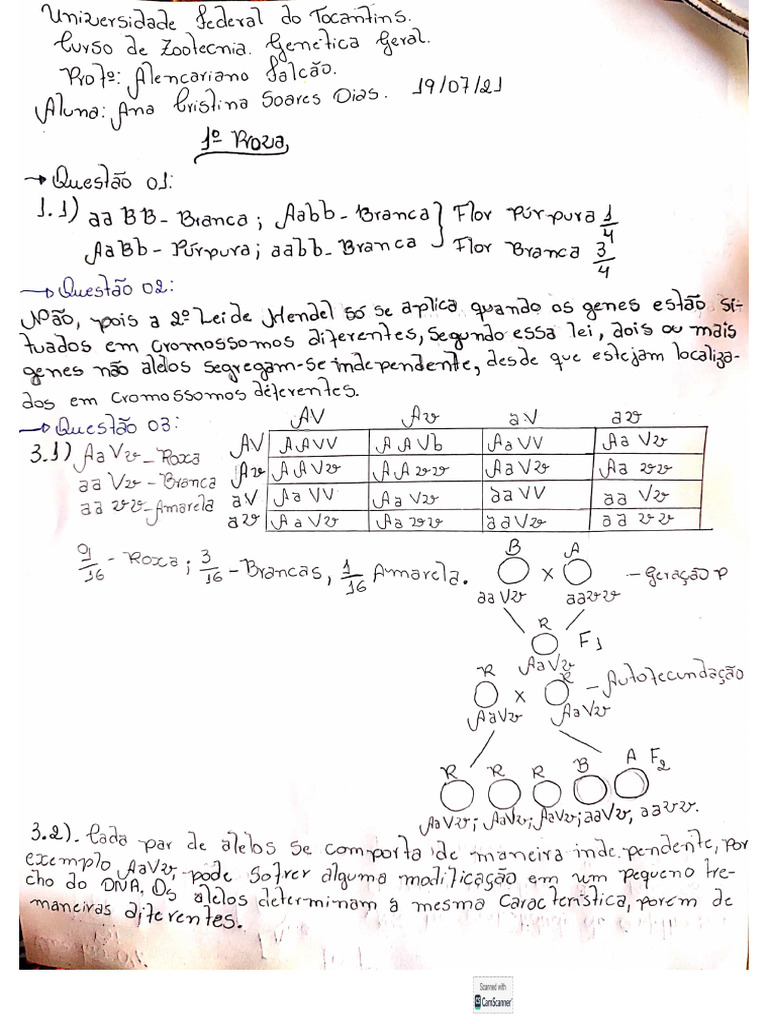 Universidade Federal do Tocantins.
Curso de Zootecnia. Genética Geral.
Profº: Alencariano Falcão.
Aluna: Ana Cristina Soares Dias. 19/07/21
1º Prova
→ Questão 01:
1.1) aaBB - Branca; Aabb - Branca } Flor Púrpura 1/4
AaBb - Púrpura; aabb - Branca } Flor Branca 3/4
→ Questão 02:
Não, pois a 2º Lei de Mendel só se aplica quando os genes estão si-
tuados em cromossomos diferentes, segundo essa lei, dois ou mais
genes não alelos segregam-se independente, desde que estejam localiza-
dos em cromossomos diferentes.
→ Questão 03:
AV Av aV av
3.1) AaVv - Roxa
aaVv - Branca
aavv - Amarela
AV AAVV AAVb AaVV AaVv
Av AAVv AAvv AaVv Aavv
aV AaVV AaVv aaVV aaVv
av AaVv Aavv aaVv aavv
9/16 - Roxa; 3/16 - Brancas, 1/16 Amarela.
B A
x - Geração P
aaVv aavv
R F1
AaVv
R R
x - Autofecundação
AaVv AaVv
R R R B A F2
AaVv; AaVv; AaVv; aaVv, aavv.
3.2). Cada par de alelos se comporta de maneira inde.pendente, por
exemplo AaVv, pode sofrer alguma modificação em um pequeno tre-
cho do DNA. Os alelos determinam a mesma característica, porem de
maneiras diferentes.
Scanned with
CS CamScanner